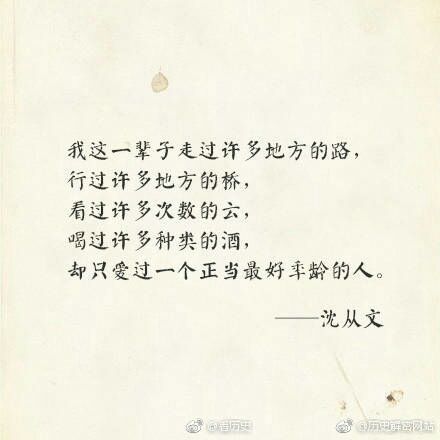 我这一辈子走过许多地方的路,
行过许多地方的桥,
看过许多次数的云,
喝过许多种类的酒,
却只爱过一个正当最好年龄的人。
——沈从文
@看历史
@历史解密网站